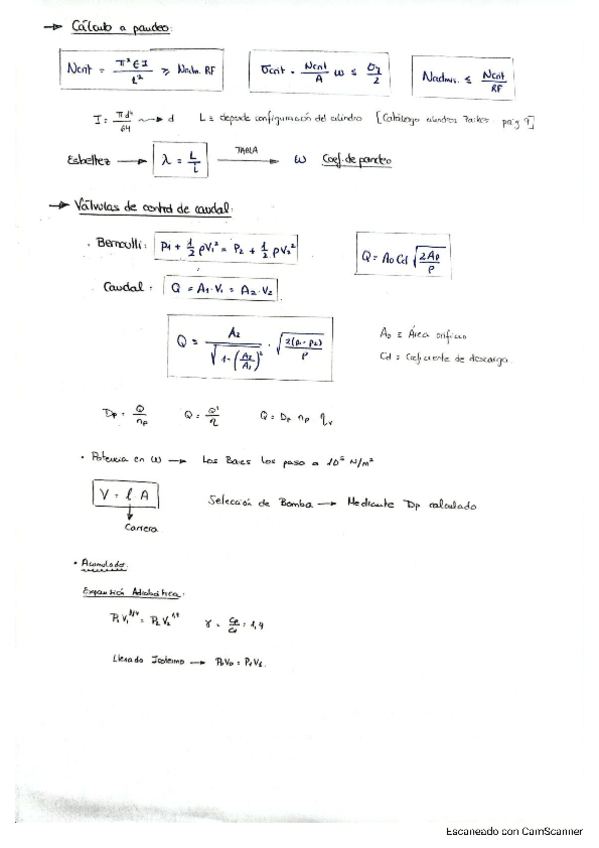 → Cálculo a pandeo:
Ncrit = π² E I / L² ≥ Nmáx. RF    σcrit = Ncrit / A ω ≤ σy / 2    Nadmis. ≤ Ncrit / RF
I = πd⁴ / 64 → d    L ≡ depende configuración del cilindro [Catálogo cilindros Parker pág 9]
Esbeltez → λ = L / i    TABLA →    ω Coef. de pandeo
→ Válvulas de control de caudal:
· Bernoulli: P1 + 1/2 ρV1² = P2 + 1/2 ρV2²    Q = A0 Cd √(2Δp / ρ)
Caudal: Q = A1·V1 = A2·V2
Q = A2 / √(1-(A2/A1)²) · √(2(p1-p2) / ρ)
A0 ≡ Área orificio
Cd ≡ Coeficiente de descarga
Dp = Q / np    Q = Q' / η    Q = Dp np ηv
· Potencia en W → Los Bares los paso a 10⁵ N/m²
V = l A    Selección de Bomba → Mediante Dp calculado
Carrera
· Acumulador:
Expansión Adiabática:
P1V1^1,4 = P2V2^1,4    γ = Cp / Cv = 1,4
Llenado Isotermo → P0V0 = P1V1
Escaneado con CamScanner